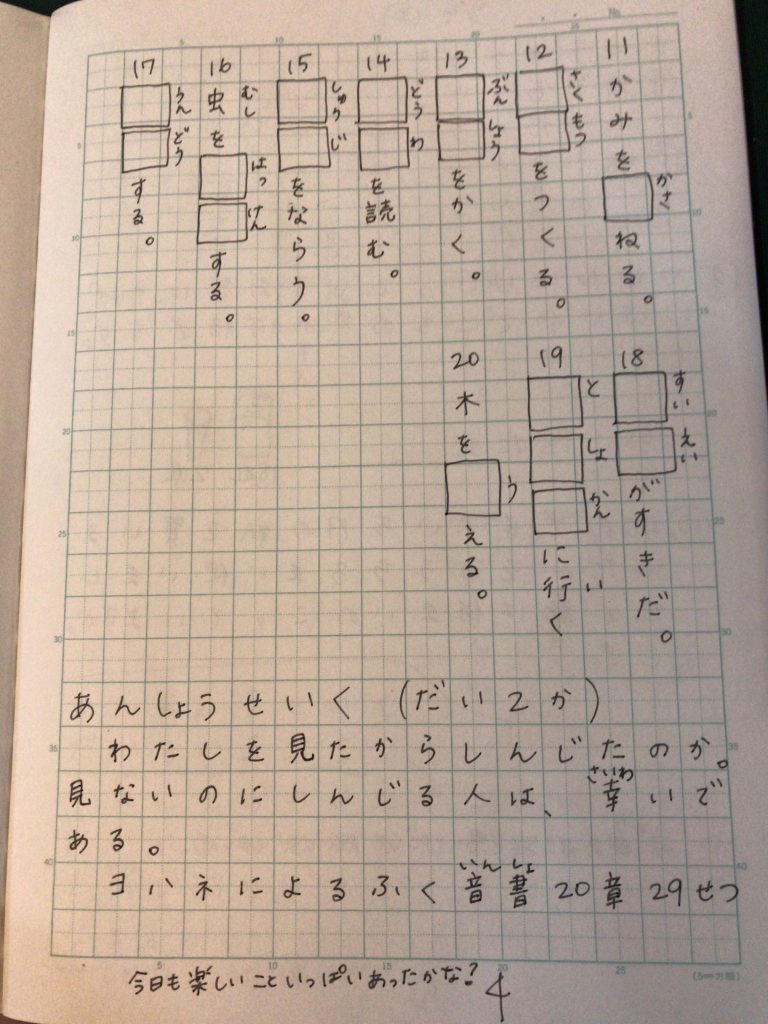 No.
11 かみを□ねる。
かさ
12 □□をつくる。
さくもつ
13 □□をかく。
ぶんしょう
14 □□を読む。
どうわ
15 □□をならう。
しゅうじ
16 虫を□□する。
むし はっけん
17 □□する。
うんどう
18 □□がすきだ。
すいえい
19 □□□に行く
としょかん い
20 木を□える。
う
あんしょうせいく (だい2か)
わたしを見たからしんじたのか。
さいわ
見ないのにしんじる人は、幸いで
ある。
いんしょ
ヨハネによるふく音書20章29せつ
今日も楽しいこといっぱいあったかな?
4
(5mm方眼)